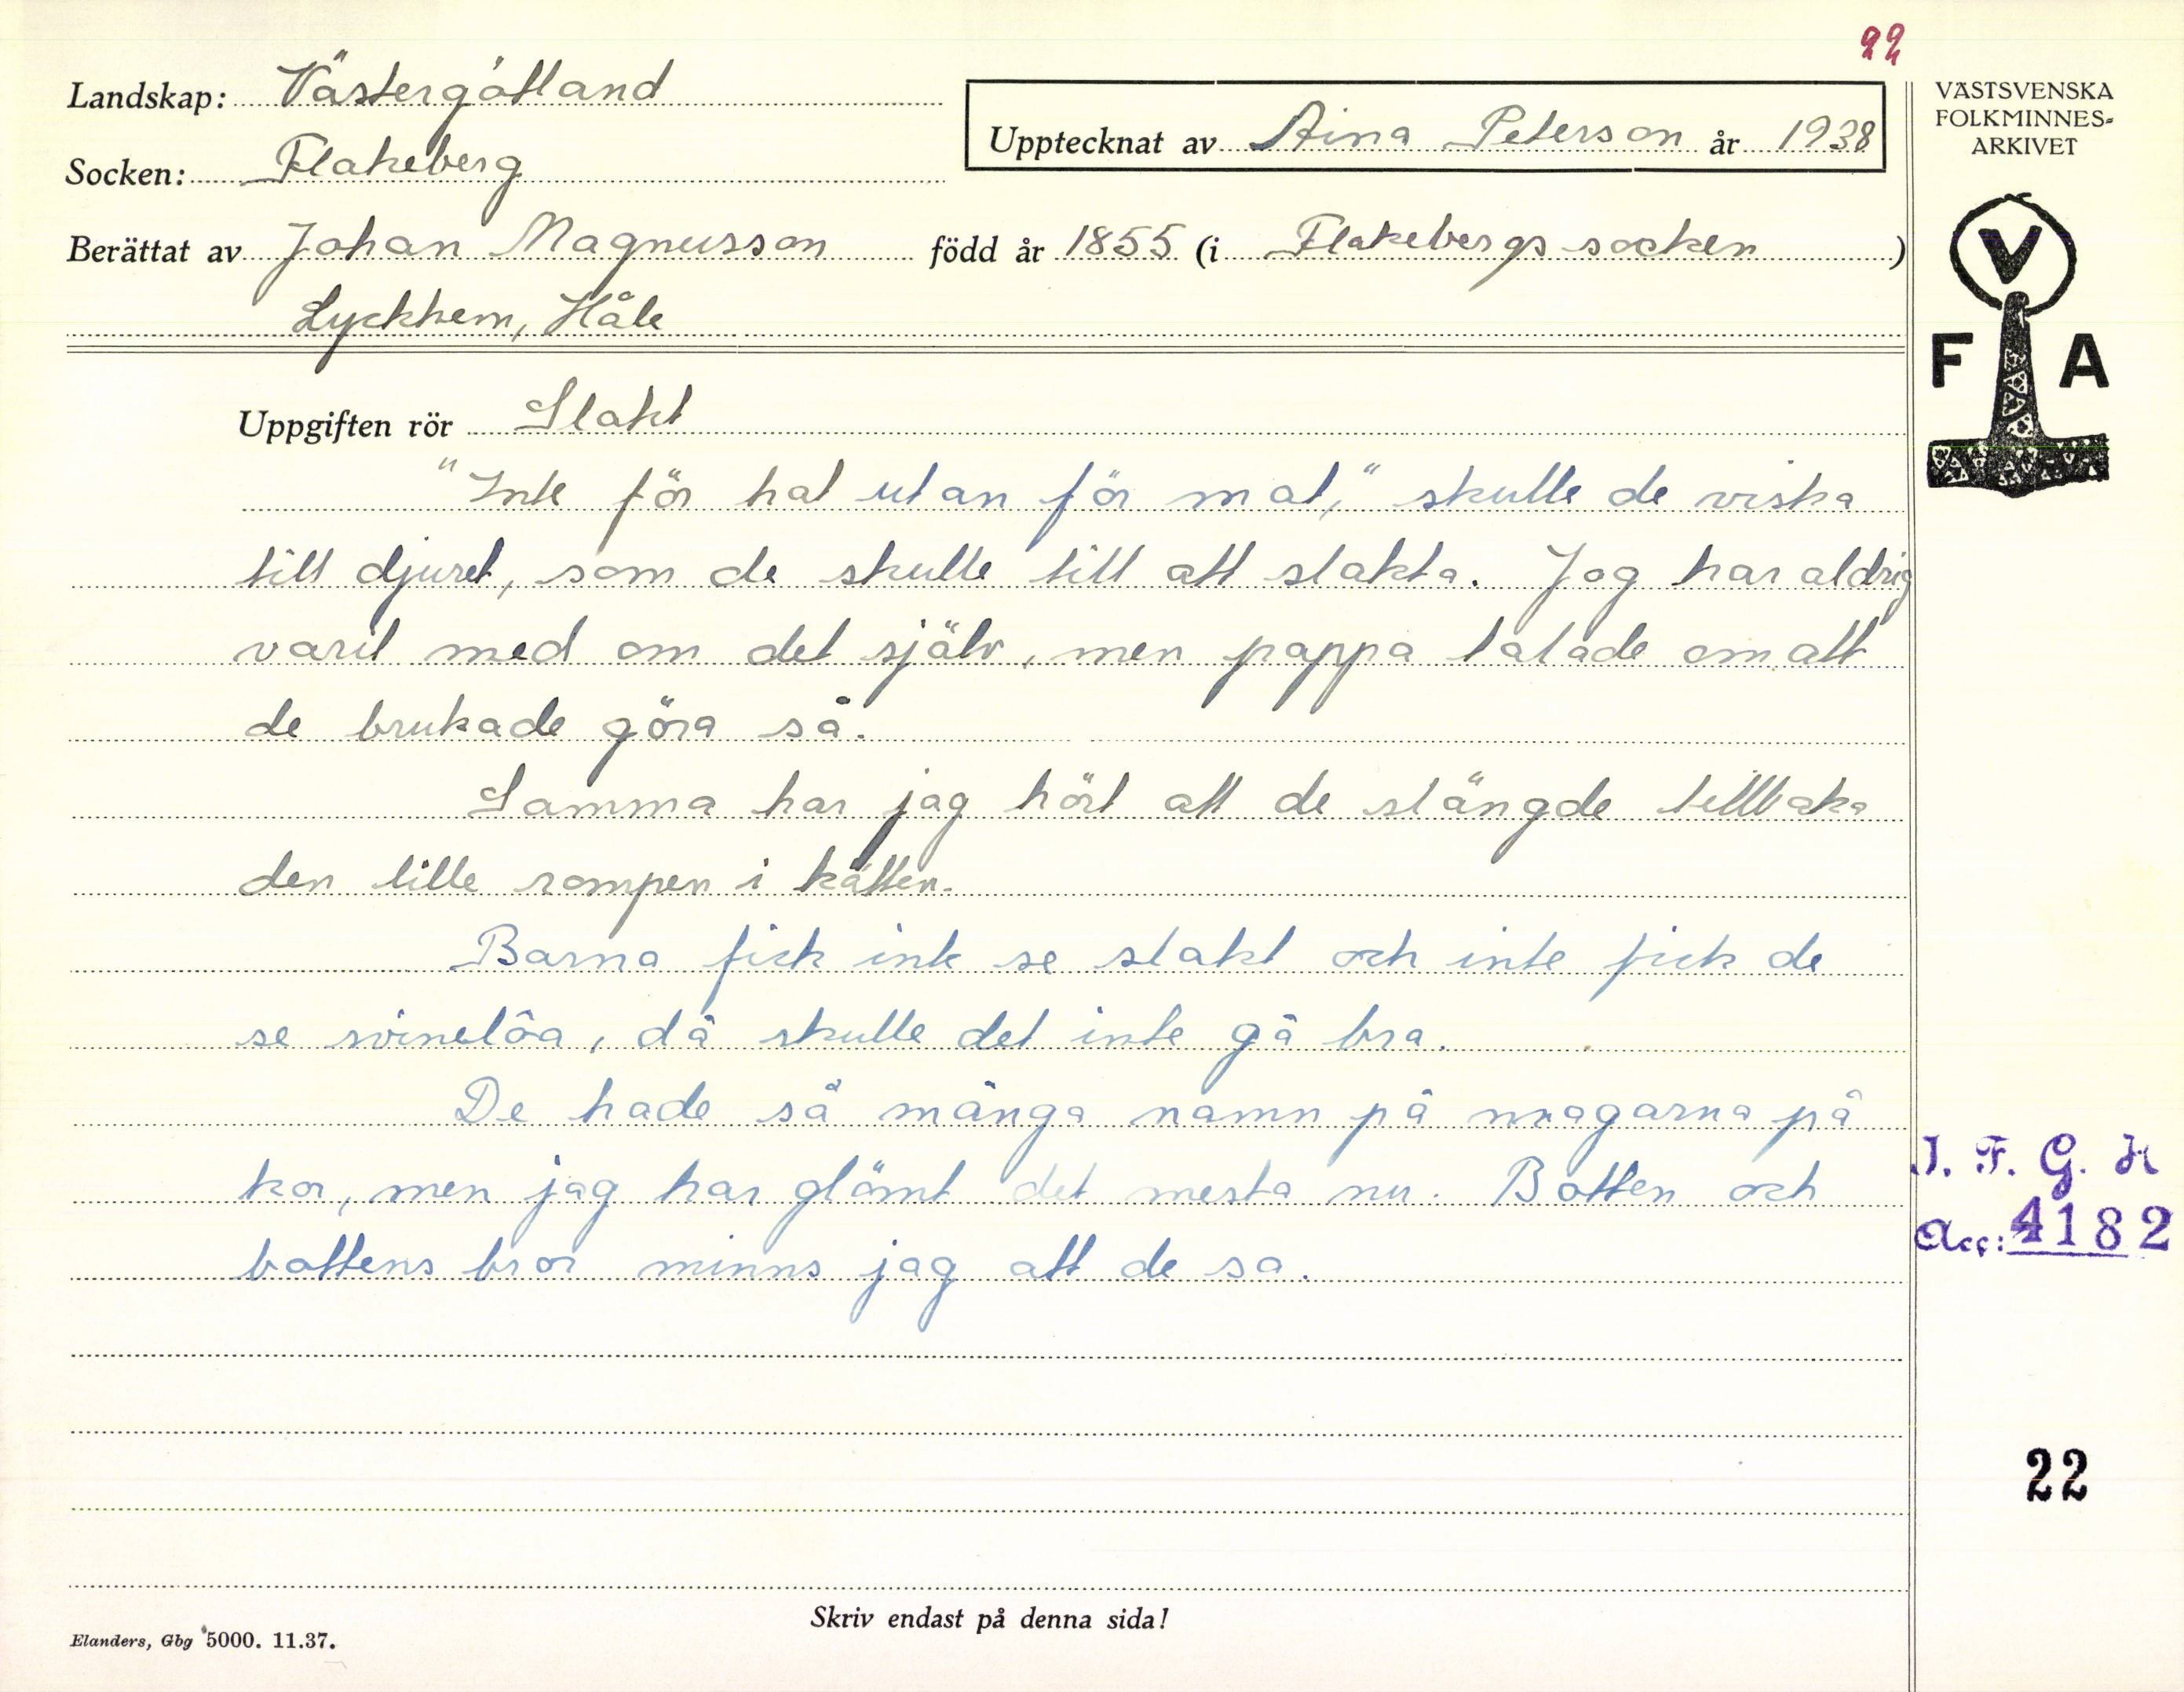 22
Landskap: Västergötland
Upptecknat av Aina Peterson år 1938
Socken: Flakeberg
Berättat av Johan Magnusson född år 1855 (i Flakebergs socken)
Lyckhem, Håle
VÄSTSVENSKA
FOLKMINNES-
ARKIVET
V
F A
Uppgiften rör Slakt
"Inte för hat utan för mat," skulle de viska
till djuret, som de skulle till att slakta. Jag har aldrig
varit med om det själv, men pappa talade om att
de brukade göra så.
Samma har jag hört att de slängde tillbaka
den lille rompen i kätten.
Barna fick inte se slakt och inte fick de
se svinelåa, då skulle det inte gå bra.
De hade så många namn på magarna på
kor, men jag har glömt det mesta nu. Botten och
bottens bror minns jag att de sa.
I. F. G. H
Acc: 4182
22
Skriv endast på denna sida!
Elanders, Gbg 5000. 11.37.